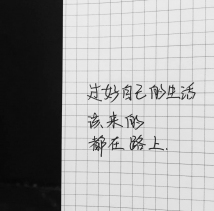 过好自己的生活
该来的
都在路上.